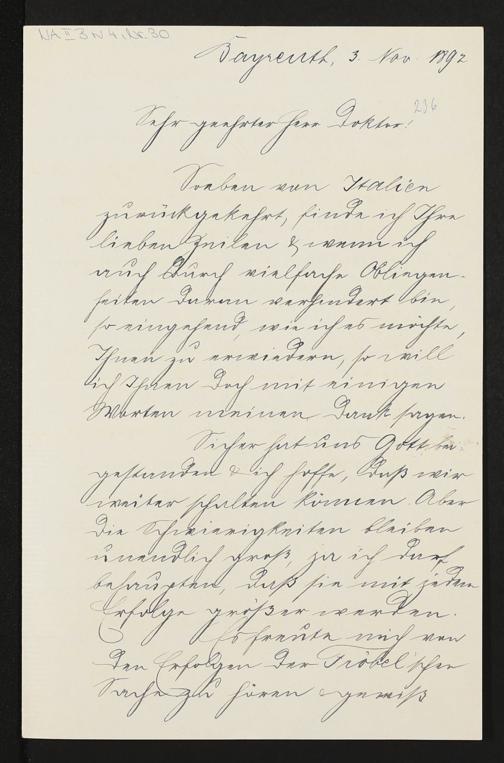 NA II 3 N 4, Nr. 30
Bayreuth, 3. Nov. 1892
236
Sehr geehrter Herr Doktor!
Soeben von Italien
zurückgekehrt, finde ich Ihre
lieben Zeilen & wenn ich
auch durch vielfache Obliegen-
heiten daran verhindert bin,
so eingehend, wie ich es möchte,
Ihnen zu erwiedern, so will
ich Ihnen doch mit einigen
Worten meinen Dank sagen.
Sicher hat uns Gott bei-
gestanden & ich hoffe, daß wir
weiter schalten können. Aber
die Schwierigkeiten bleiben
unendlich groß, ja ich darf
behaupten, daß sie mit jedem
Erfolge größer werden.
Es freute mich von
den Erfolgen der Fröbel'schen
Sache zu hören & gewiß